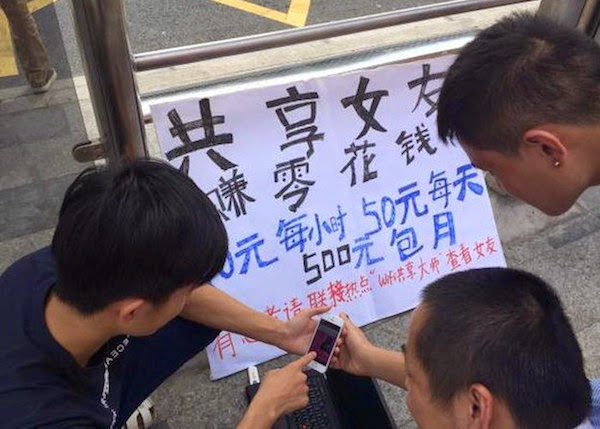 共享女友
赚零花钱
0元每小时 50元每天
500元包月
联接热点"wifi共享大师"查看女友
有意